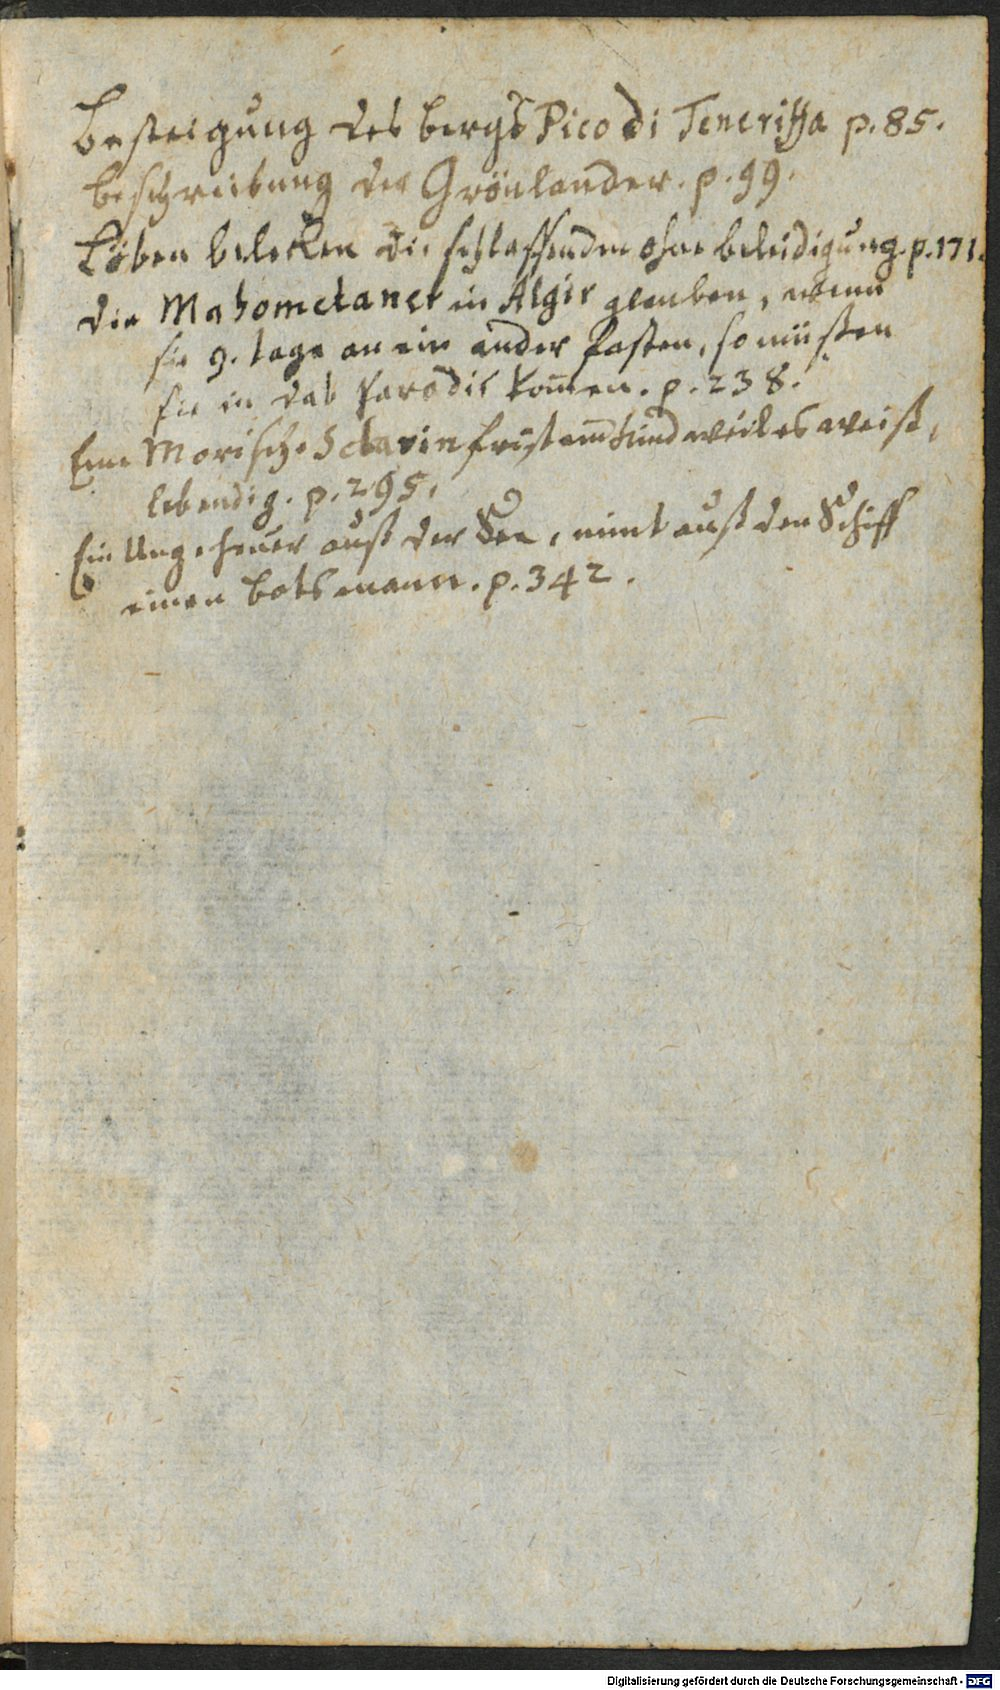 Besteigung des bergs Pico di Teneriffa p. 85.
beschreibung der Grönlander. p. 99.
Löben belecken die schlaffenden ohne beleidigung. p. 171.
die Mahometaner in Algir glauben, wenn
sie 9. tage an ein ander fasten, so müsten
sie in das Paradis kom̄en. p. 238.
Eine Morische Sclavin frist Kind weil es weis ist,
lebendig. p. 295.
Ein Ungeheuer auß der See, nimt auß den Schiff
einen botsmann. p. 342.
Digitalisierung gefördert durch die Deutsche Forschungsgemeinschaft - DFG